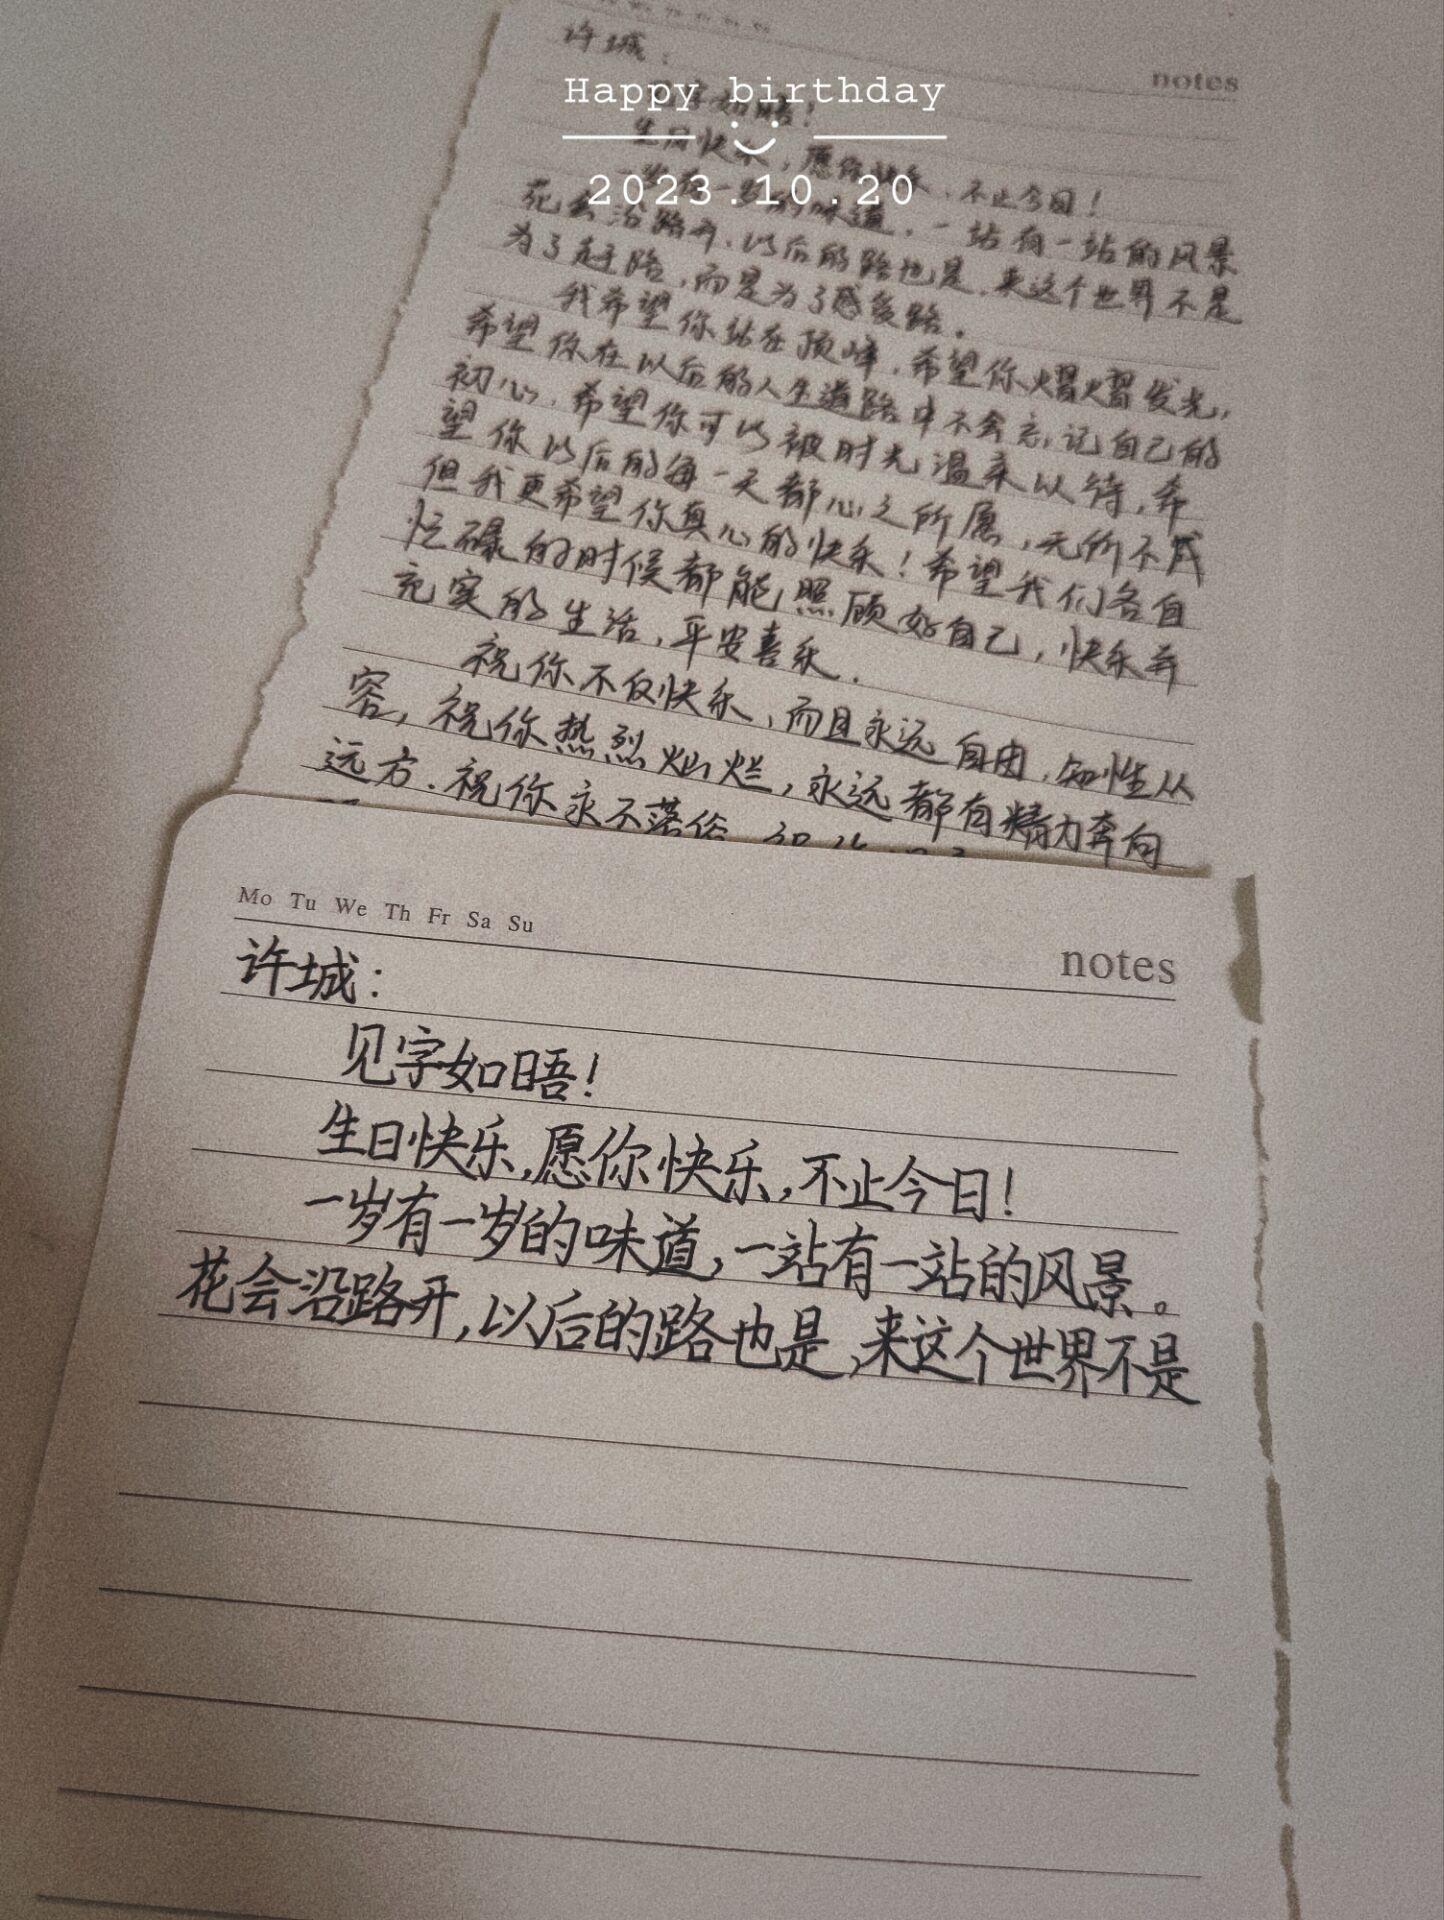 许城：
notes
Happy birthday
见字如晤！
生日快乐，愿你快乐，不止今日！
2023.10.20
一岁有一岁的味道，一站有一站的风景
花会沿路开，以后的路也是，来这个世界不是
为了赶路，而是为了感受路。
我希望你站在顶峰，希望你熠熠发光，
希望你在以后的人生道路中不会忘记自己的
初心，希望你可以被时光温柔以待，希
望你以后的每一天都心之所愿，无所不成
但我更希望你真心的快乐！希望我们各自
忙碌的时候都能照顾好自己，快乐并
充实的生活，平安喜乐．
祝你不仅快乐，而且永远自由，知性从
容，祝你热烈灿烂，永远都有精力奔向
远方．祝你永不落俗
Mo Tu We Th Fr Sa Su
notes
许城：
见字如晤！
生日快乐，愿你快乐，不止今日！
一岁有一岁的味道，一站有一站的风景。
花会沿路开，以后的路也是，来这个世界不是